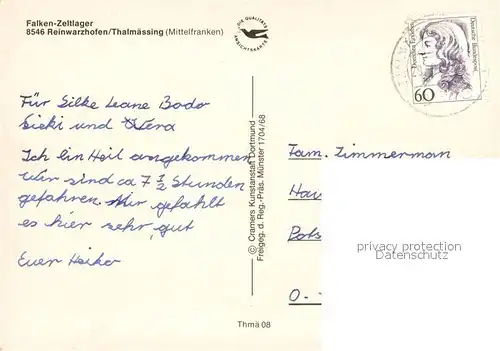 Falken-Zeltlager
8546 Reinwarzhofen/Thalmässing (Mittelfranken)
DIE QUALITÄTS
ANSICHTSKARTE
Deutsche Bundespost
60
Für Silke Leane Bodo
Sieki und Wera
Ich bin Heil angekommen
Wir sind ca 7 1/2 Stunden
gefahren. Mir gefählt
es hier sehr gut
Euer Heiko
© Cramers Kunstanstalt Dortmund
Freigeg. d. Reg.-Präs. Münster 1704/68
Fam. Zimmerman
Hau
Pots
O.-
privacy protection
Datenschutz
Thmä 08